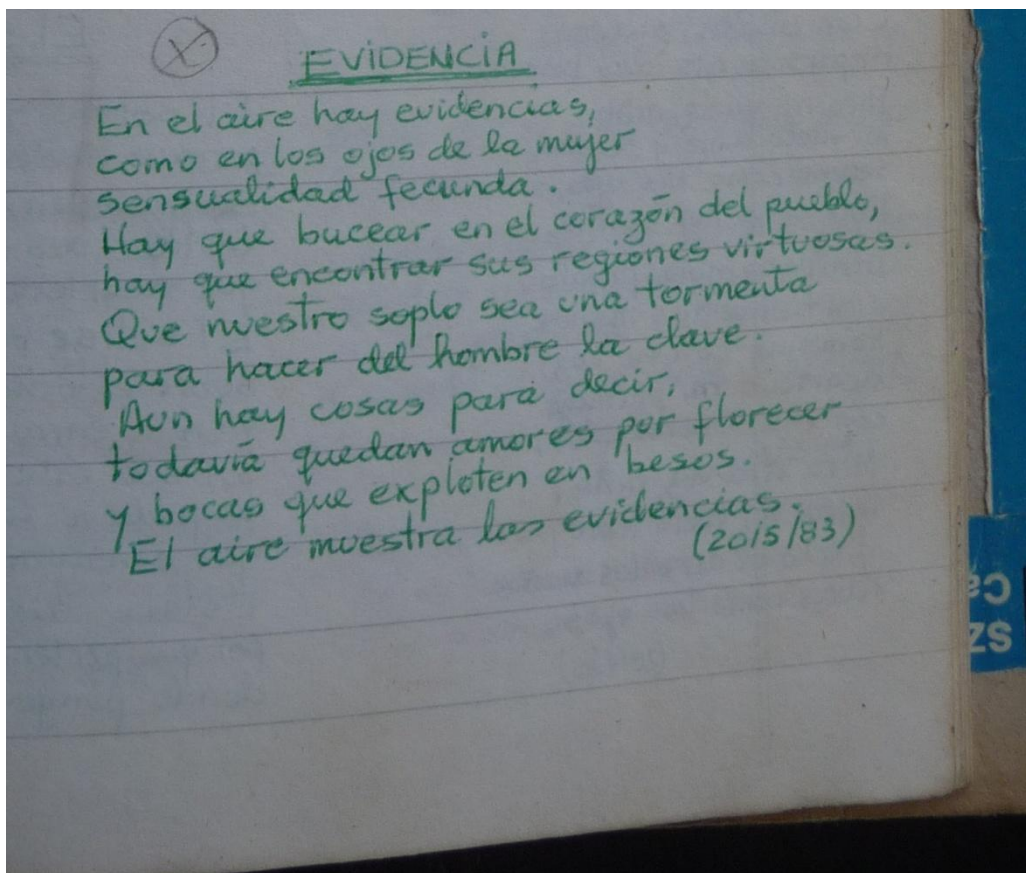 X
EVIDENCIA
En el aire hay evidencias,
como en los ojos de la mujer
sensualidad fecunda.
Hay que bucear en el corazón del pueblo,
hay que encontrar sus regiones virtuosas.
Que nuestro soplo sea una tormenta
para hacer del hombre la clave.
Aun hay cosas para decir,
todavía quedan amores por florecer
y bocas que exploten en besos.
El aire muestra las evidencias.
(20/5/83)